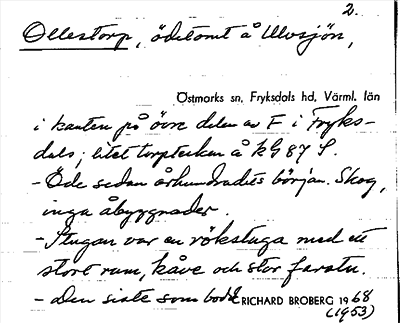 2.
Ollestorp, ödetomt å Ulvsjön,
Östmarks sn, Fryksdals hd, Värml. län
i kanten på övre delen av F i Fryks-
dals; litet torptecken å kG 87 S.
- Öde sedan århundradets början. Skog,
inga åbyggnader.
- Stugan var en rökstuga med ett
stort rum, kåve och stor farstu.
- Den siste som bodde
RICHARD BROBERG 1968
(1953)